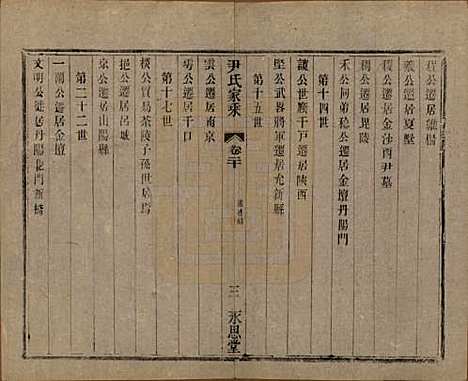 程公遷居維楊
羲公遷居夏墅
積公遷居金沙西尹墓
稠公遷居毘陵
禾公同弟穩公遷居金壇丹陽門
第十四世
讓公世廕千戶遷居陝西
堅公武畧將軍遷居允新縣
第十五世
雲公遷居南京
尹氏家乘
卷二十
三
永思堂
公遷居千口
第十七世
樸公貿易茶陵子孫世居焉
挹公遷居呂城
京公遷居山陽縣
第二十二世
一蘭公遷居金壇
文明公徙居丹陽北門新橋